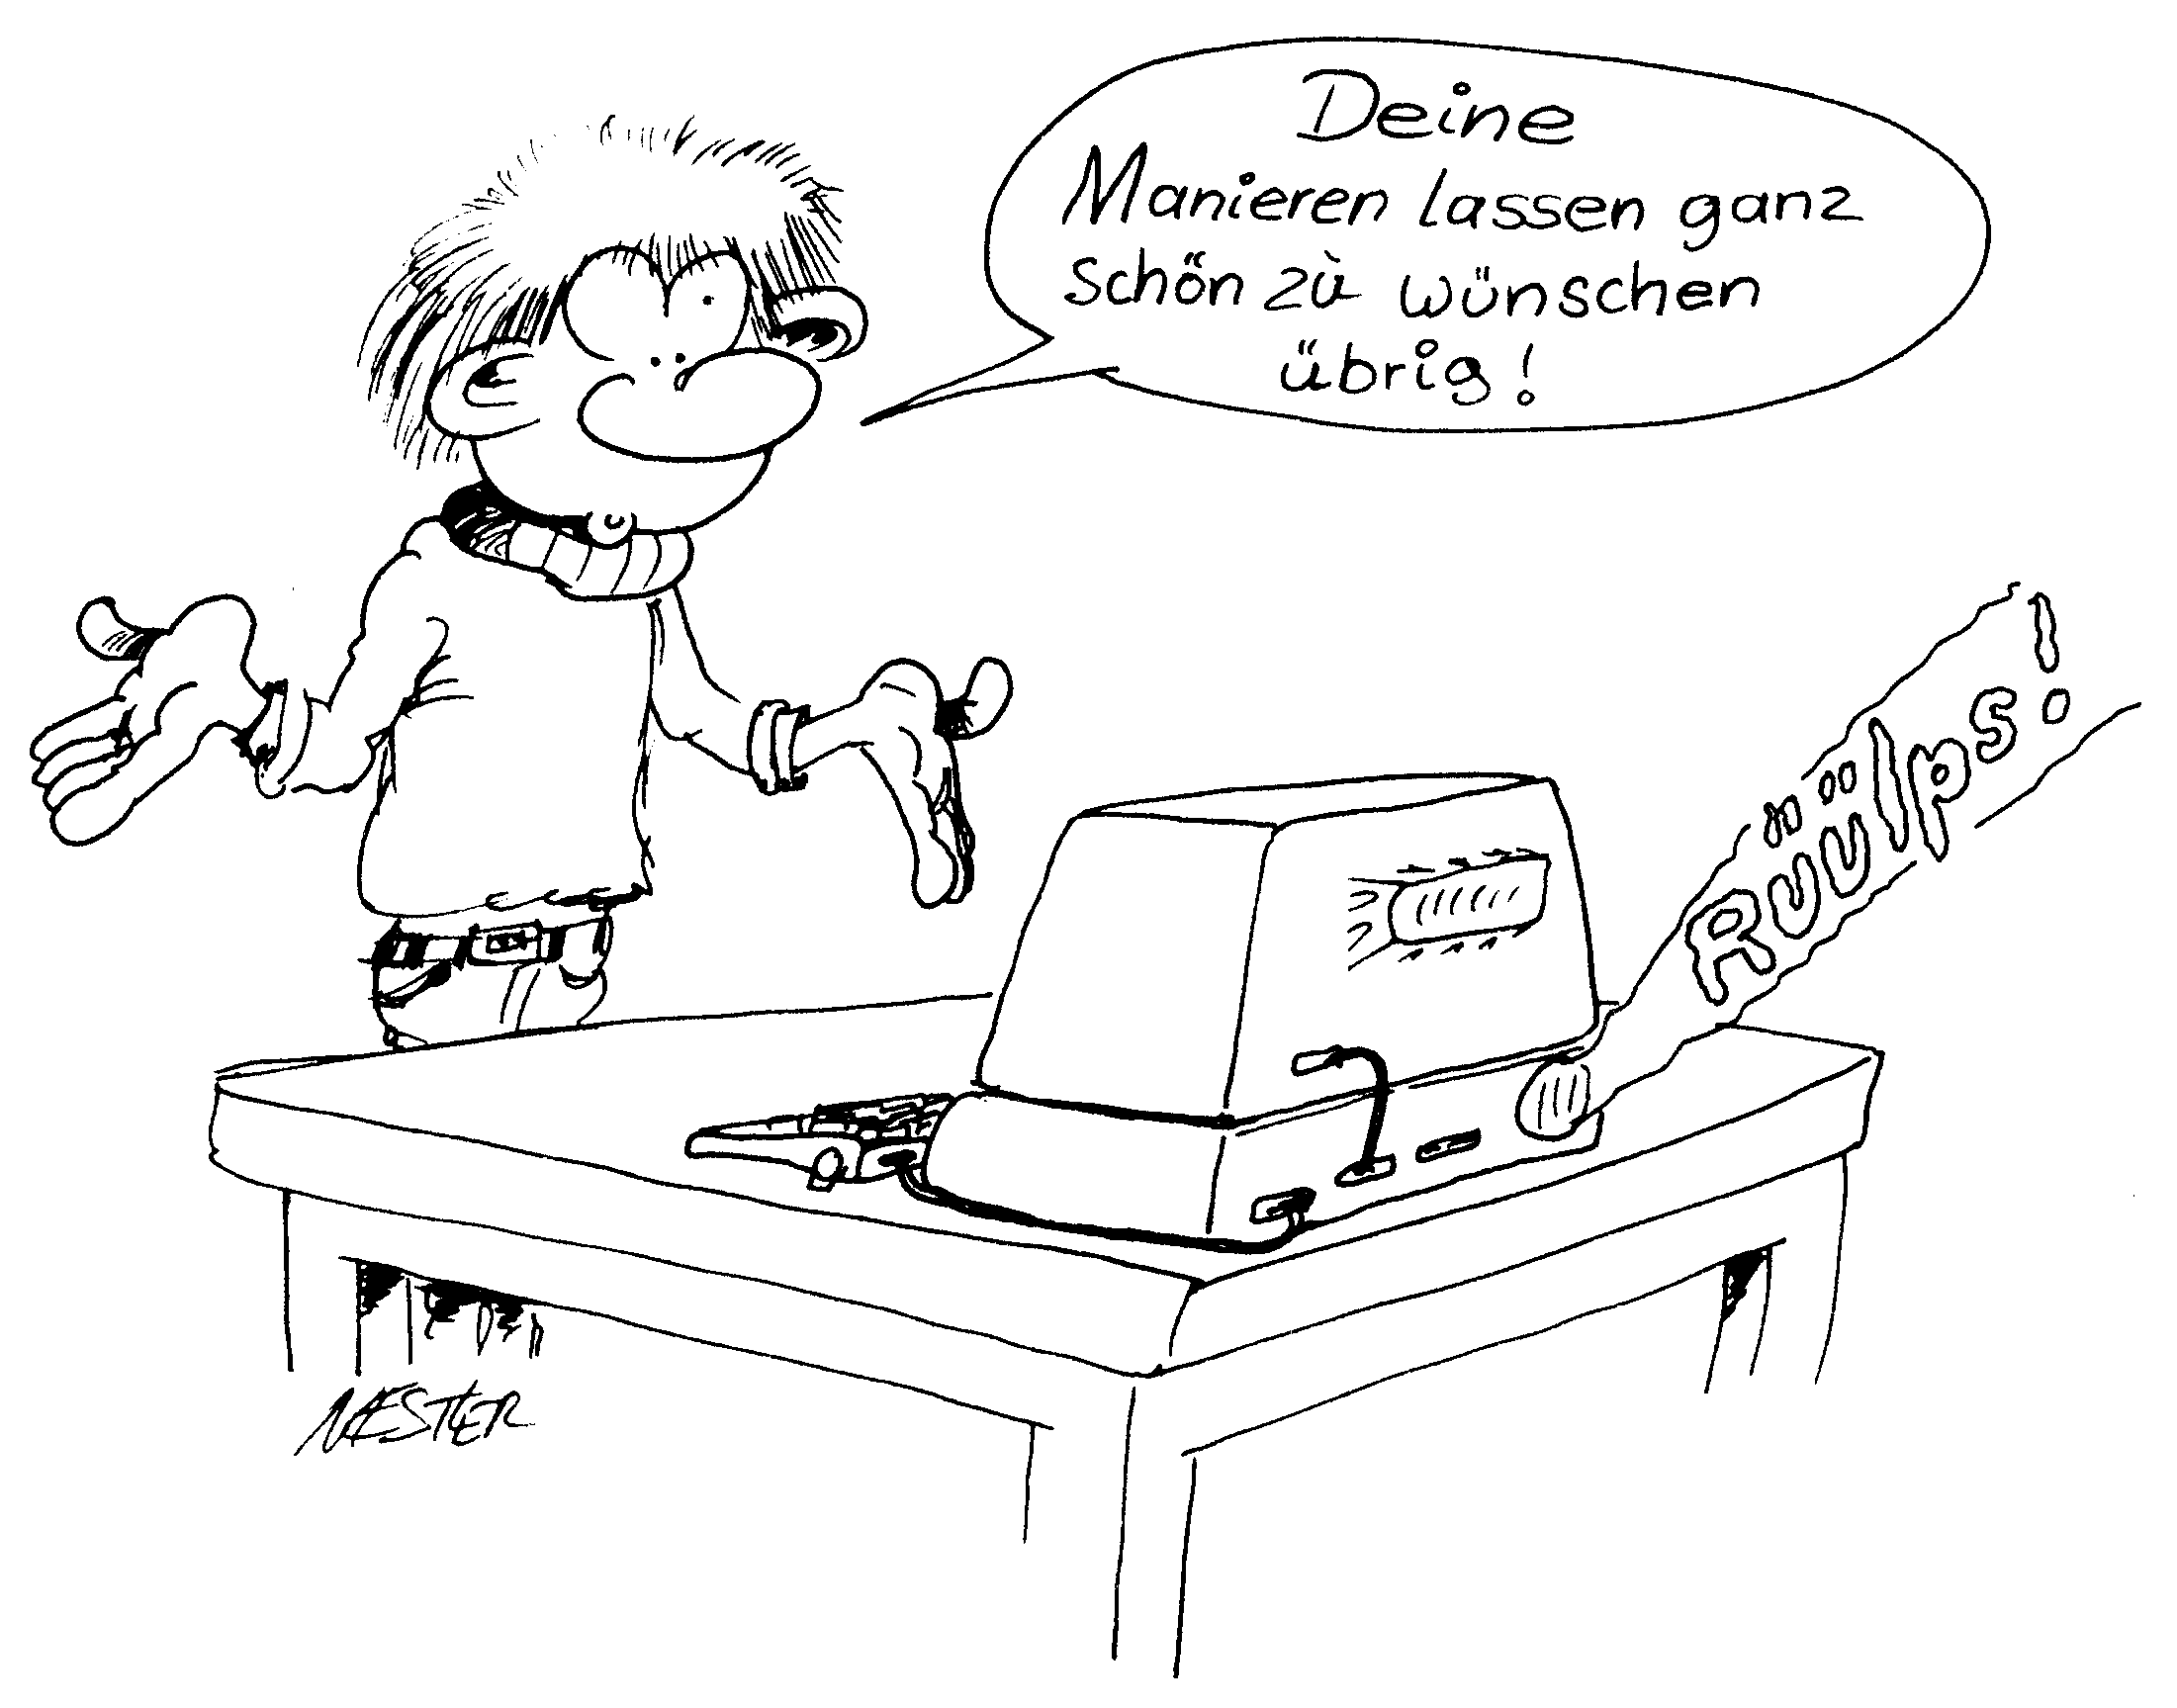 Deine
Manieren lassen ganz
schön zu wünschen
übrig!
Rüülps!
NESTLER